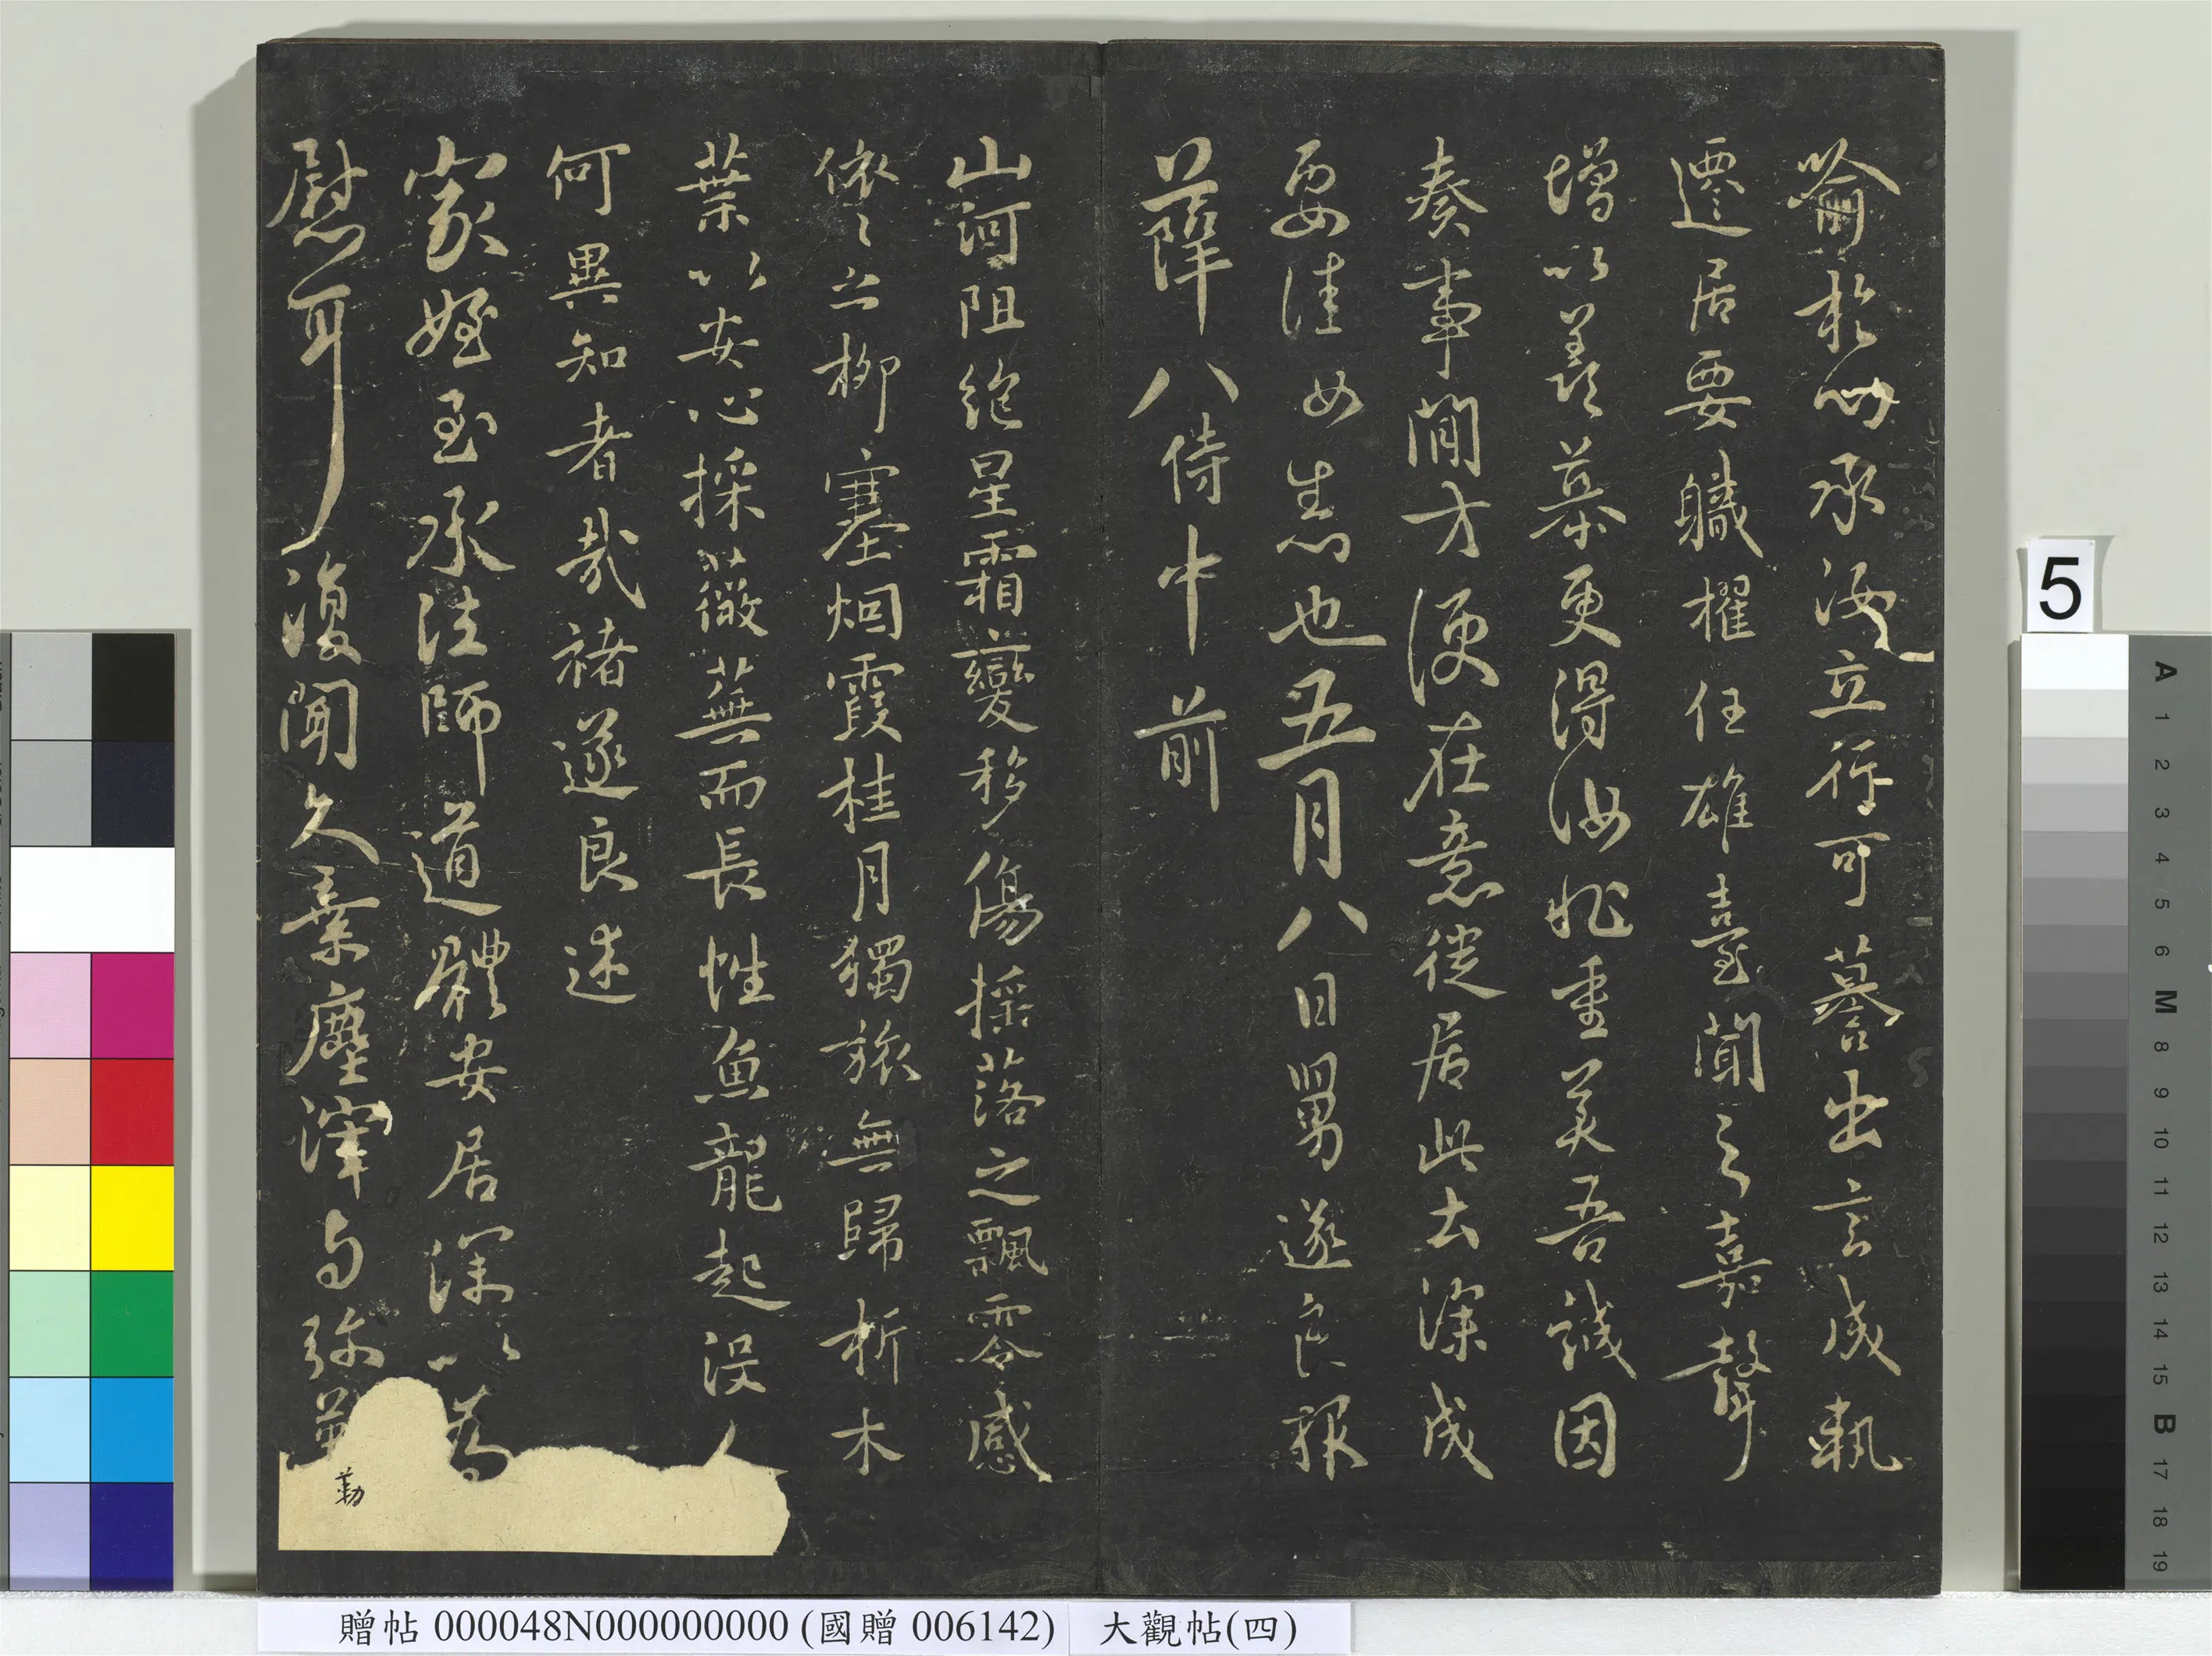 喻於幼承汝立行可慕出言成軌
遷居要軄擢任雄臺聞之嘉聲
增以羨慕更得汝重美吾誠因
奏事閒方便在意從居此去深成
要佳也五月八日舅遂良報
薛八侍中前
山河阻絶星霜變移傷搖落之飄零感
依〻之柳塞烟霞桂月獨旅無歸折木
葉以安心採薇蕪而長性魚龍起沒人
何異知者哉褚遂良述
家姪至承法師道體安居深以為
慰耳復聞久棄塵滓与弥勒
勒
5
贈帖 000048N000000000 (國贈 006142) 大觀帖(四)
A 1 2 3 4 5 6 M 8 9 10 11 12 13 14 15 B 17 18 19